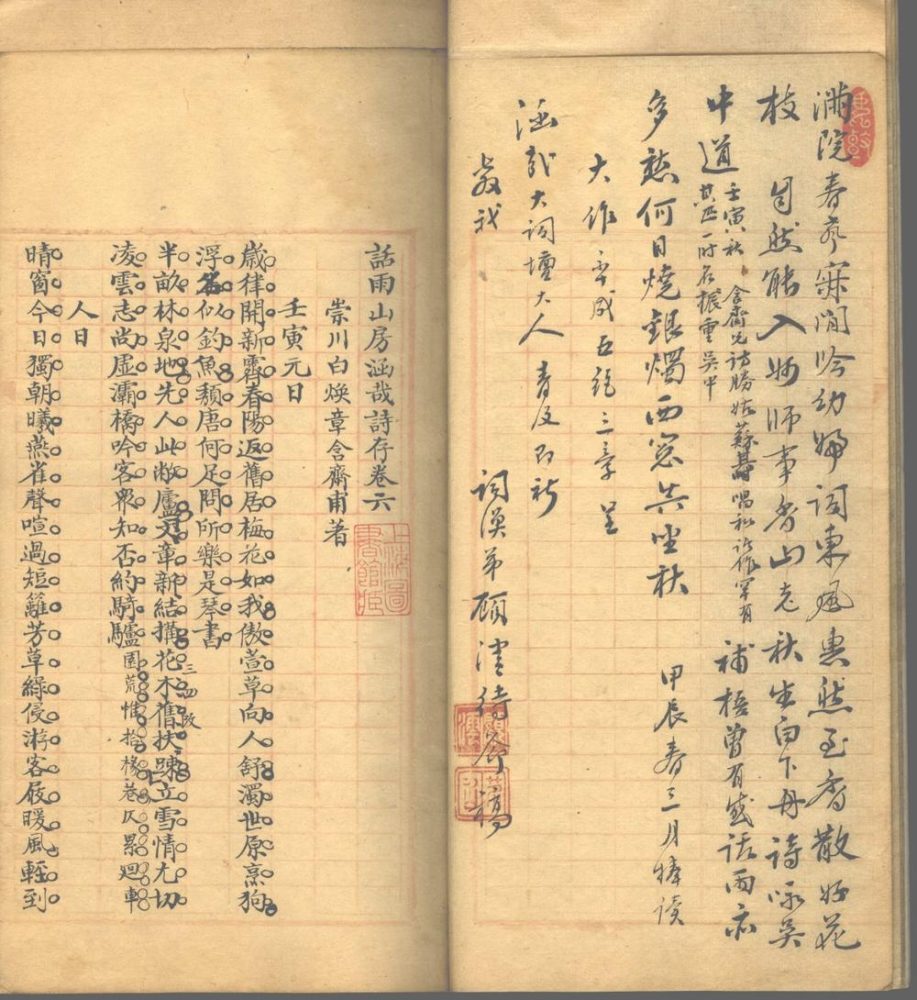 滿院春寂閒吟幼婦詞東風惠然至香散好花
枝 自然能入妙師事香山老秋坐白下舟詩詠吳
中道
壬寅八秋含齋兄訪勝姑蘇唱和諸作罕有
其匹一時名振重吳中
補梧曾有感話雨亦
多愁何日燒銀燭西窓共坐秋 甲辰春三月捧讀
大作率成五絕三章呈
涵哉大詞壇大人青及即祈
教我 弟顧稿
話雨山房涵哉詩存卷六
上海圖書館藏
崇川白煥章含齋甫著
壬寅元日
歲律開新霽春陽返舊居梅花如我傲萱草向人舒濁世原烹狗
浮名似釣魚頹唐何足問所樂是琴書
三四改
半畝林泉地先人此敝廬文章新結搆花木舊扶踈立雪情尤切
凌雲志尚虛灞橋吟客衆知否約騎驢 園荒惟拾橡巷仄罷迴車
人日
晴窗今日獨朝曦燕雀聲喧過短籬芳草綠侵游客屐暖風輕到